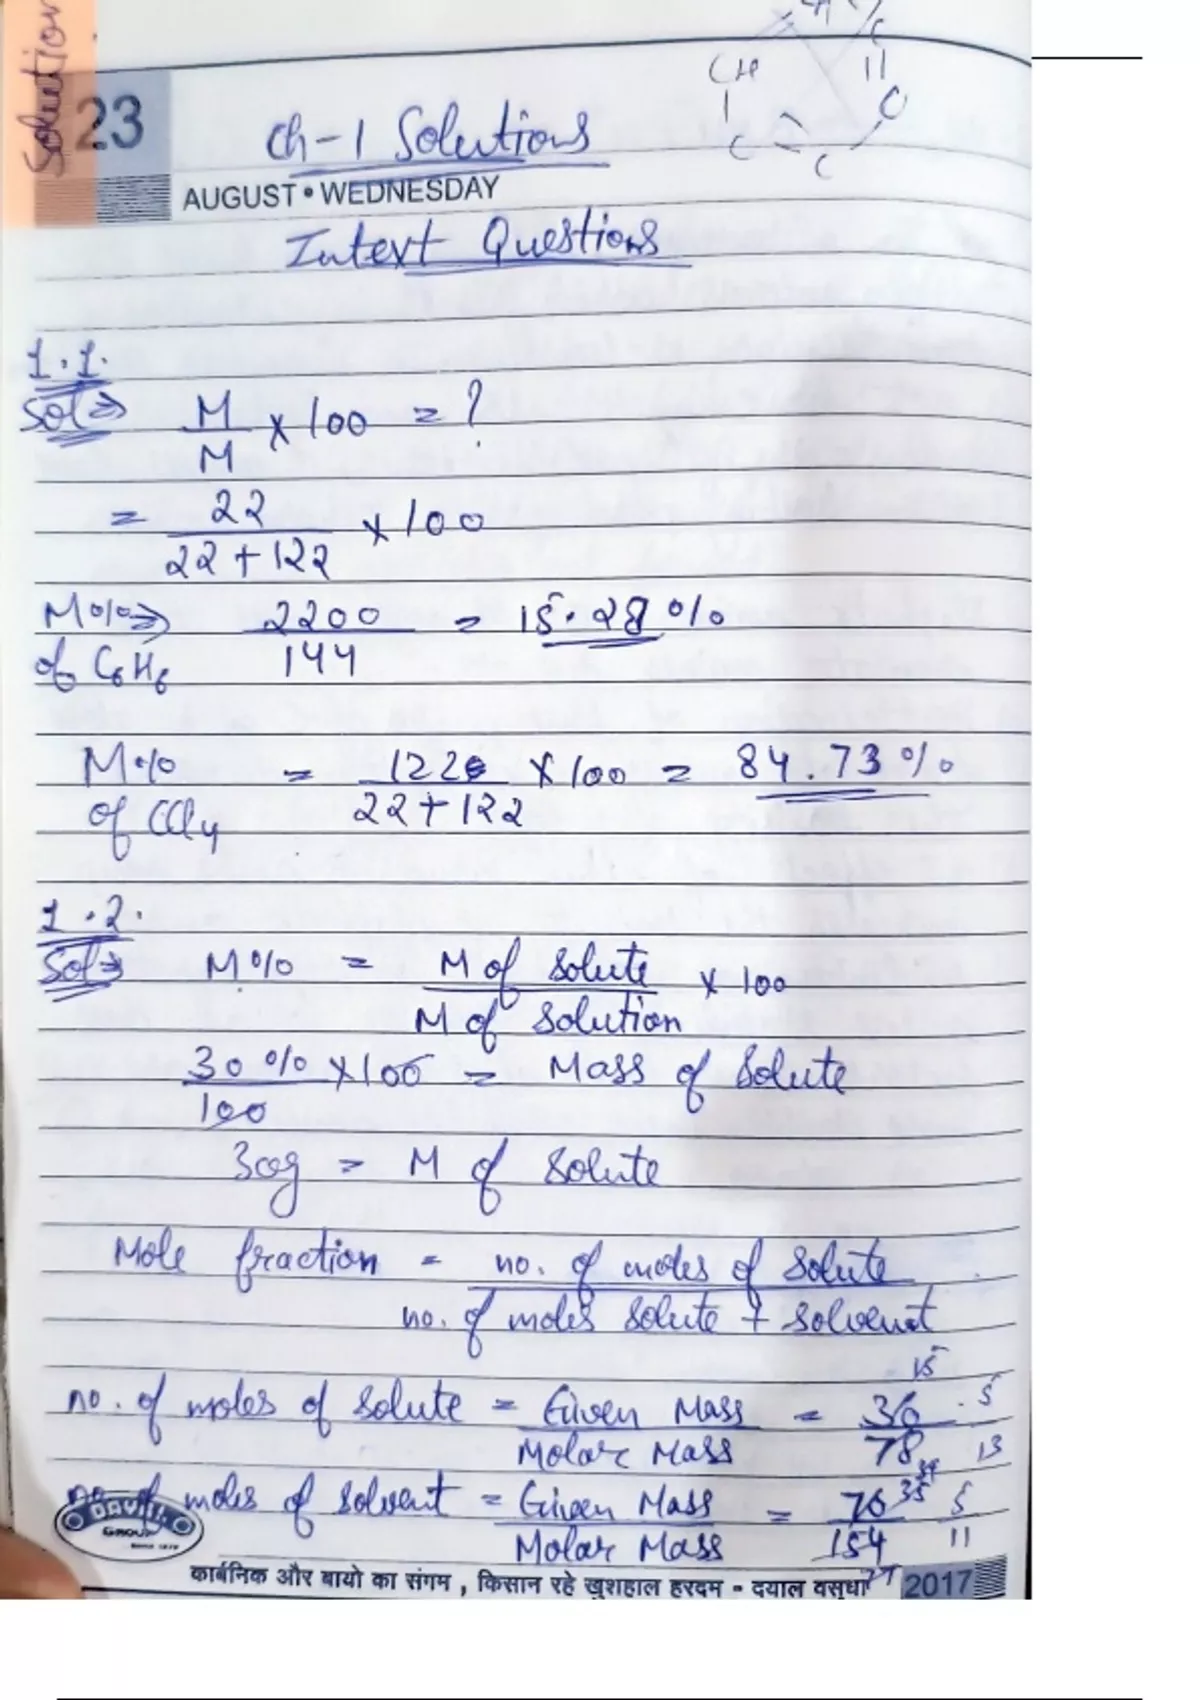 Solution
23
Ch-1 Solutions
AUGUST • WEDNESDAY
Intext Questions
CH
C
C
C
C
1.1.
Sol⇒ M/M × 100 = ?
= 22/22+122 × 100
M%⇒ of C6H6 2200/144 = 15.28%
M% of CCl4 = 122/22+122 × 100 = 84.73%
1.2.
Sol⇒ M% = M of solute/M of solution × 100
30%/100 × 100 = Mass of solute
30g = M of solute
Mole fraction = no. of moles of solute/no. of moles solute + solvent
no. of moles of solute = Given Mass/Molar Mass = 30/78 15 39 5 13
no. of moles of solvent = Given Mass/Molar Mass = 70/154 35 77 5 11
DAYAL
GROUP
कार्बनिक और बायो का संगम , किसान रहे खुशहाल हरदम • दयाल वसुधा
2017